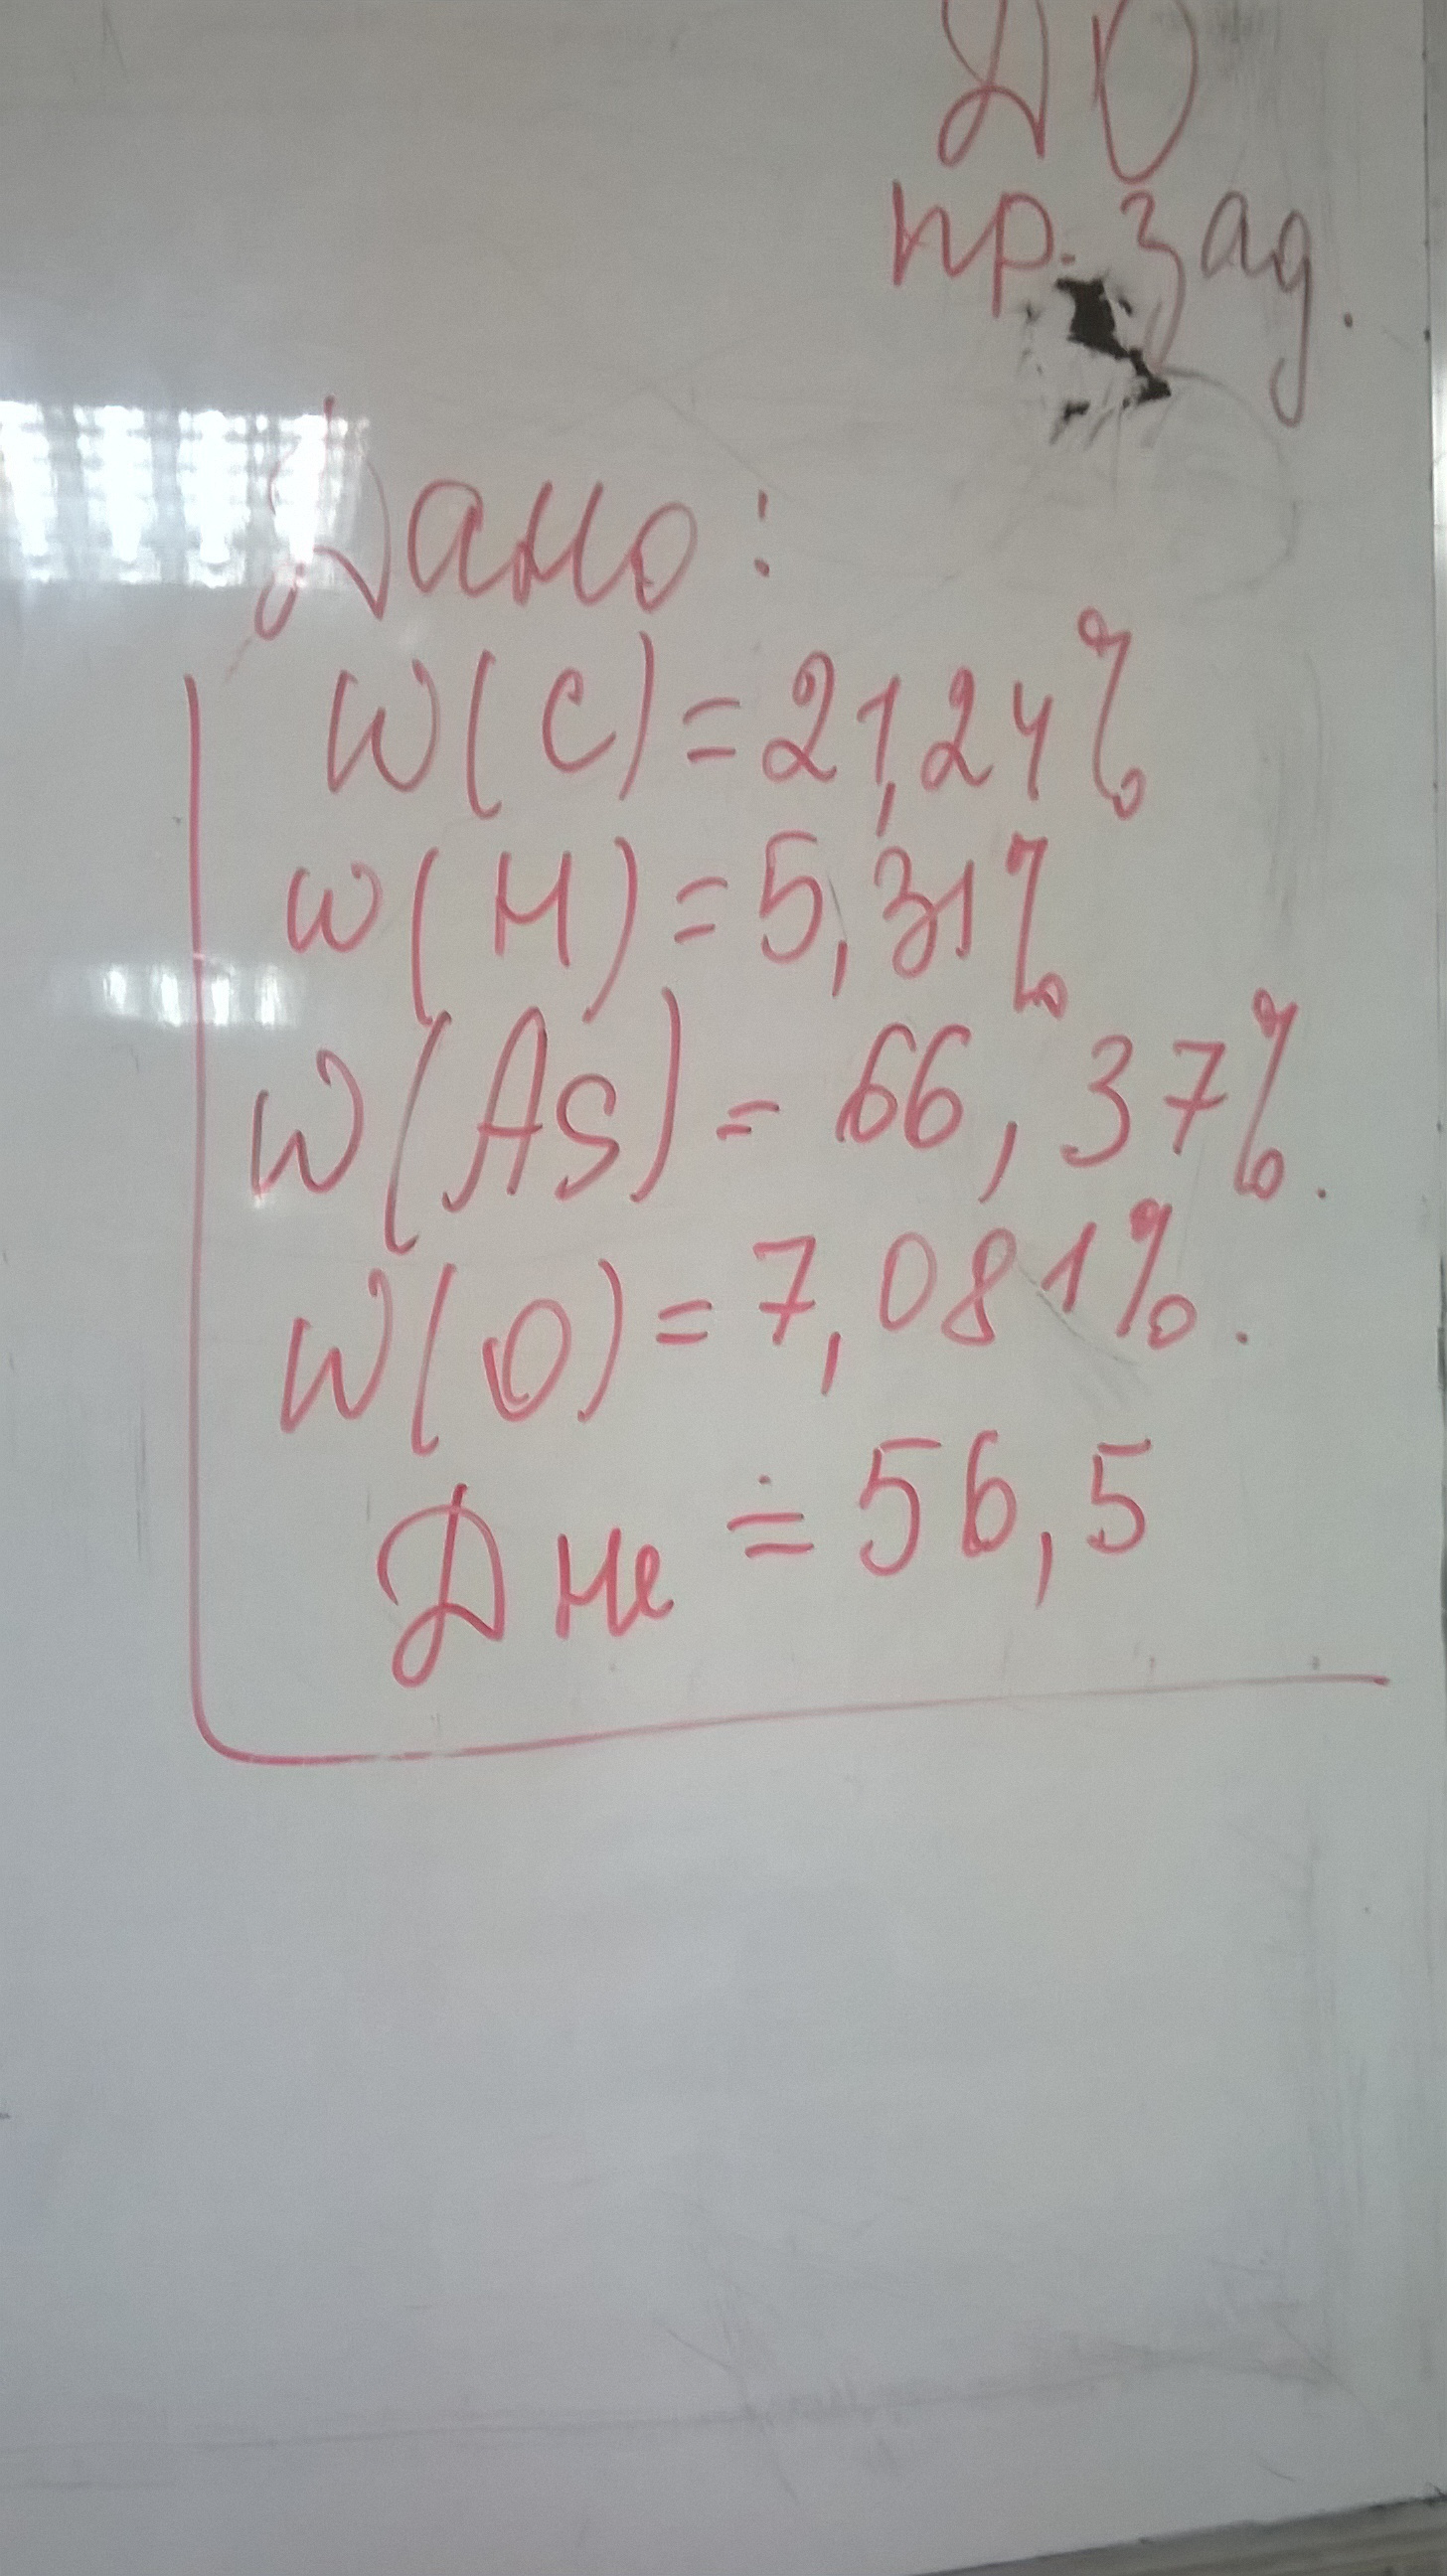 ДО
пр. зад.
Дано:
W(C)=21,24%
W(H)=5,31%
W(As)=66,37%.
W(O)=7,081%.
Дне=56,5